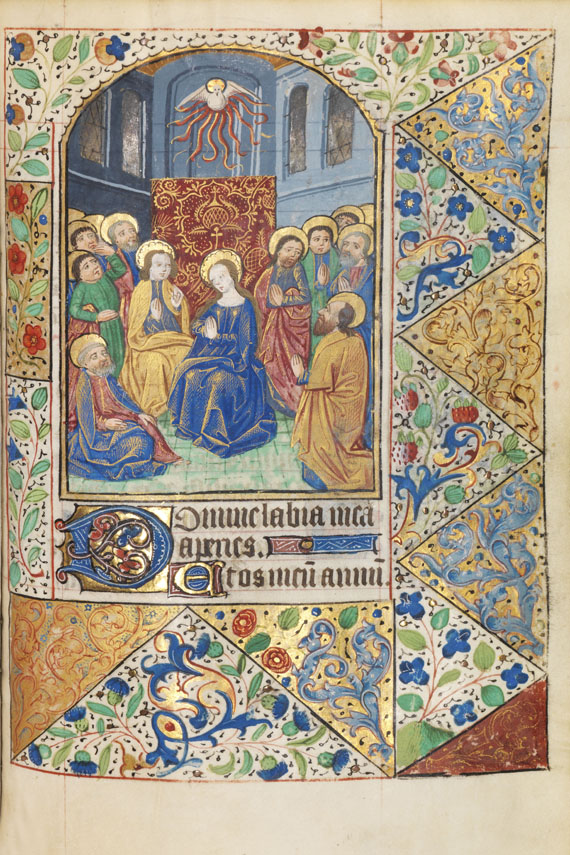 Domine labia mea
aperies.
Et os meū annū.